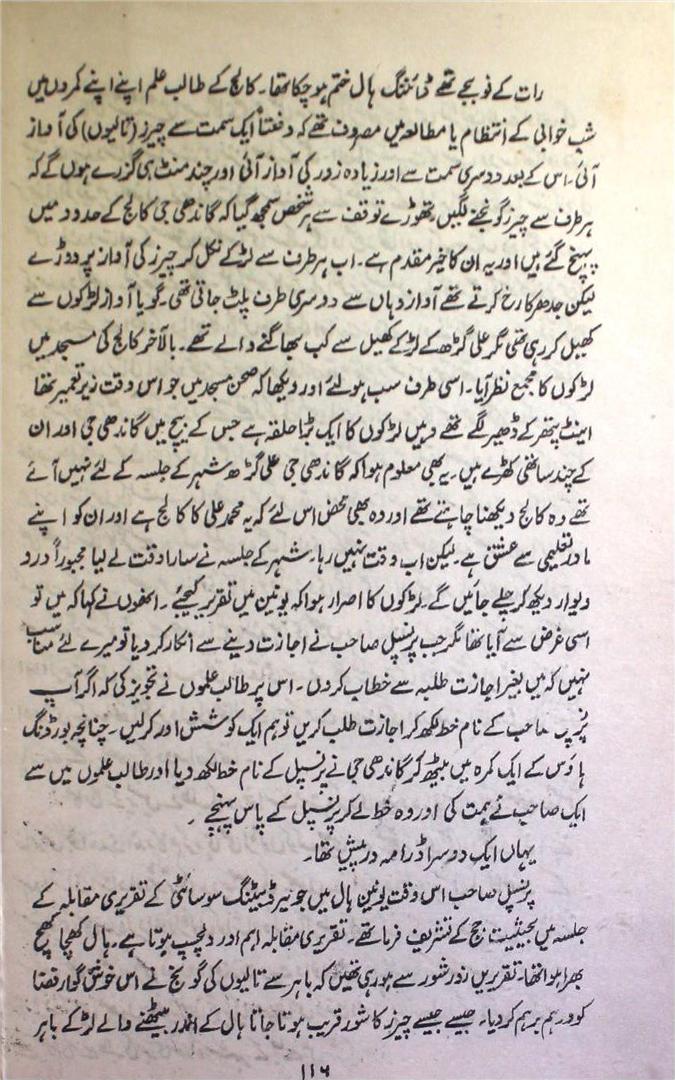 رات کے نو بجے تھے ڈائننگ ہال ختم ہو چکا تھا۔ کالج کے طالب علم اپنے اپنے کمروں میں
شب خوابی کے انتظام یا مطالعہ میں مصروف تھے کہ دفعتاً ایک سمت سے چیرز (تالیوں) کی آواز
آئی۔ اس کے بعد دوسری سمت سے اور زیادہ زور کی آواز آئی اور چند منٹ ہی گزرے ہوں گے کہ
ہر طرف سے چیرز گونجنے لگیں۔ تھوڑے توقف سے ہر شخص سمجھ گیا کہ گاندھی جی کالج کے حدود میں
پہنچ گئے ہیں اور یہ ان کا خیر مقدم ہے۔ اب ہر طرف سے لڑکے نکل کر چیرز کی آواز پر دوڑے
لیکن جدھر کا رخ کرتے تھے آواز وہاں سے دوسری طرف پلٹ جاتی تھی۔ گویا آواز لڑکوں سے
کھیل کر رہی تھی مگر علی گڑھ کے لڑکے کھیل سے کب بھاگنے والے تھے۔ بالآخر کالج کی مسجد میں
لڑکوں کا مجمع نظر آیا۔ اسی طرف سب ہو لئے اور دیکھا کہ صحن مسجد میں جو اس وقت زیر تعمیر تھا
اینٹ پتھر کے ڈھیر لگے تھے وہیں لڑکوں کا ایک بڑا حلقہ ہے جس کے بیچ میں گاندھی جی اور ان
کے چند ساتھی کھڑے ہیں۔ یہ بھی معلوم ہوا کہ گاندھی جی علی گڑھ شہر کے جلسہ کے لئے نہیں آئے
تھے وہ کالج دیکھنا چاہتے تھے اور وہ بھی محض اس لئے کہ یہ محمد علی کا کالج ہے اور ان کو اپنے
مادر تعلیمی سے عشق ہے۔ لیکن اب وقت نہیں رہا۔ شہر کے جلسہ نے سارا وقت لے لیا مجبوراً در و
دیوار دیکھ کر چلے جائیں گے۔ لڑکوں کا اصرار ہوا کہ یونین میں تقریر کیجئے۔ انھوں نے کہا کہ میں تو
اسی غرض سے آیا تھا مگر جب پرنسپل صاحب نے اجازت دینے سے انکار کر دیا تو میرے لئے مناسب
نہیں کہ میں بغیر اجازت طلبہ سے خطاب کروں۔ اس پر طالب علموں نے تجویز کی کہ اگر آپ
صاحب کے نام خط لکھ کر اجازت طلب کریں تو ہم ایک کوشش اور کر لیں۔ چنانچہ بورڈنگ
ہاؤس کے ایک کمرہ میں بیٹھ کر گاندھی جی نے پرنسپل کے نام خط لکھ دیا اور طالب علموں میں سے
ایک صاحب نے ہمت کی اور وہ خط لے کر پرنسپل کے پاس پہنچے۔
یہاں ایک دوسرا ڈرامہ در پیش تھا۔
پرنسپل صاحب اس وقت یونین ہال میں جونیر ڈیبیٹنگ سوسائٹی کے تقریری مقابلہ کے
جلسہ میں بحیثیت جج کے تشریف فرما تھے۔ تقریری مقابلہ اہم اور دلچسپ ہوتا ہے۔ ہال کھچا کھچ
بھرا ہوا تھا۔ تقریریں زور شور سے ہو رہی تھیں کہ باہر سے تالیوں کی گونج نے اس خوش گوار فضا
کو درہم برہم کر دیا۔ جیسے جیسے چیرز کا شور قریب ہوتا جاتا ہال کے اندر بیٹھنے والے لڑکے باہر
۱۱۶